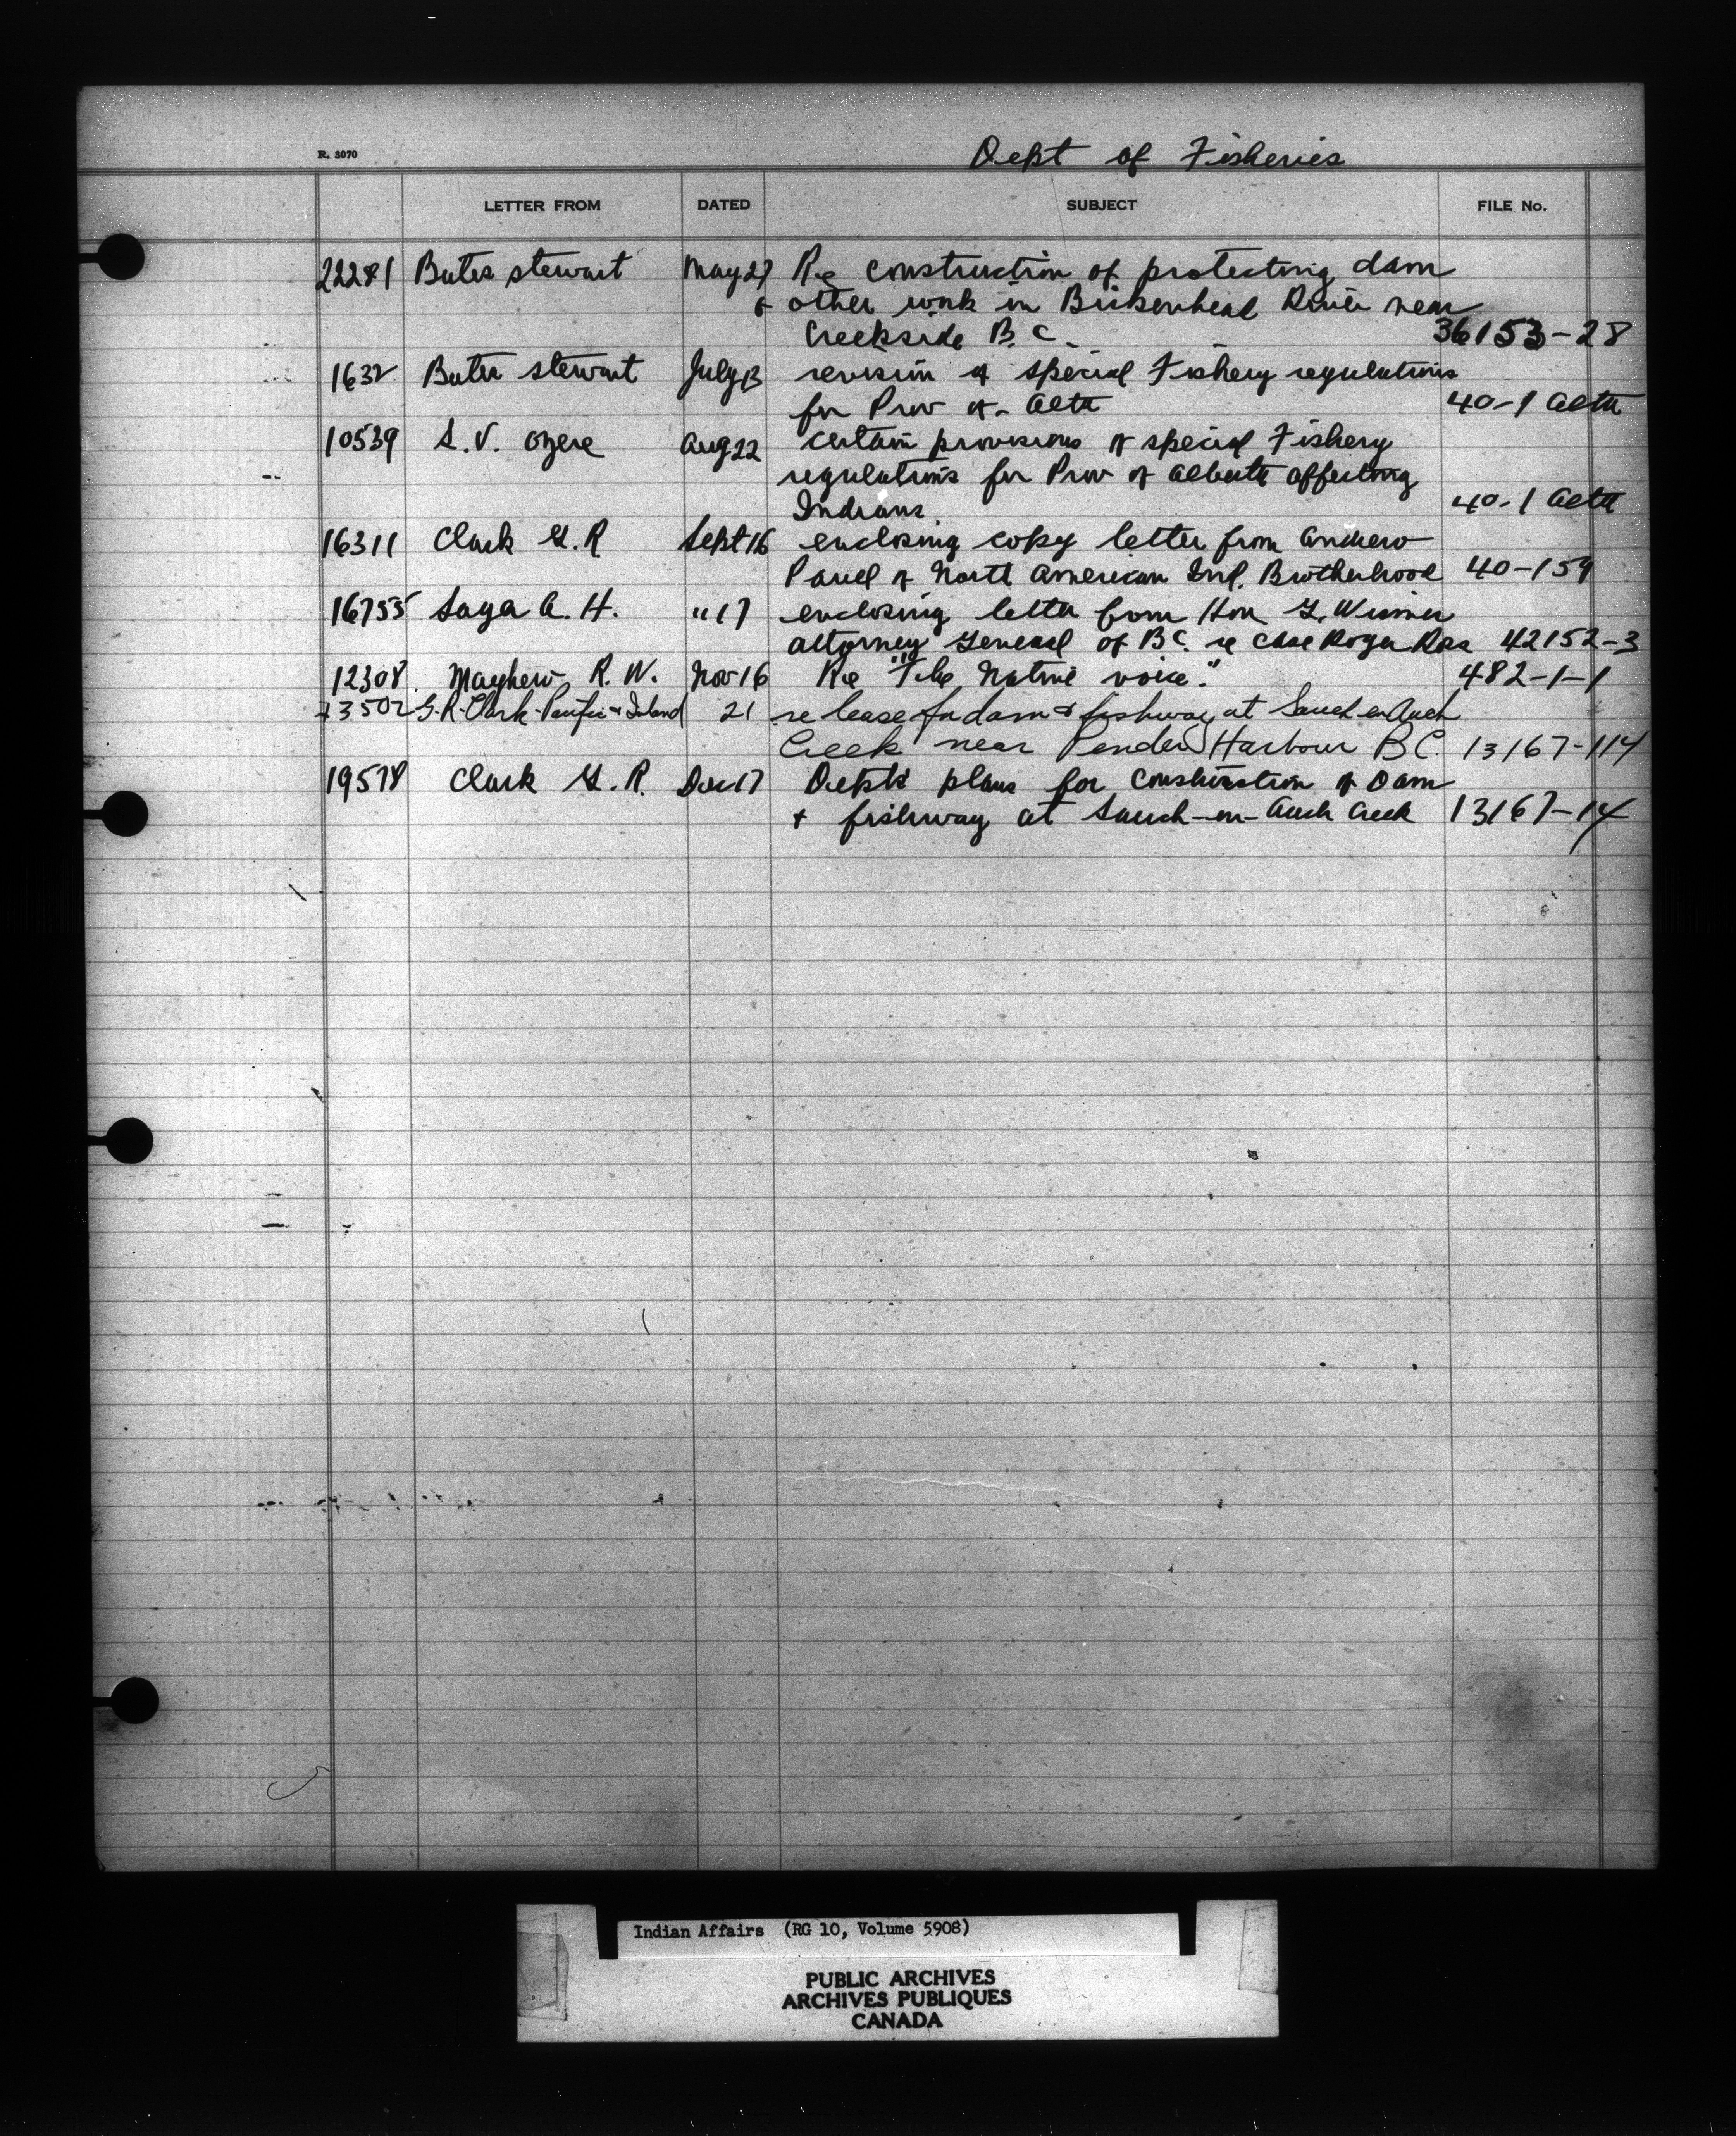 R. 3070
Dept of Fisheries
LETTER FROM DATED SUBJECT FILE No.
22281 Bates Stewart May 27 Re construction of protecting dam
& other work in Birkenhead River near
Creekside B.C. 36153-28
1632 Bates Stewart July 13 revision of special Fishery regulations
for Prov of Alta 40-1 Alta
10539 S.V. Ozere Aug 22 certain provisions of special Fishery
regulations for Prov of Alberta affecting
Indians. 40-1 Alta
16311 Clark G.R Sept 16 enclosing copy letter from Andrew
Paull of North American Ind. Brotherhood 40-159
16755 A. H. " 17 enclosing letter from Hon G. Wismer
Attorney General of B.C. re case Roger Ross 42152-3
12308 Mayhew R. W. Nov 16 Re "The Native voice". 482-1-1
13502 G.R. Clark-Pacific & Inland 21 re lease for dam & fishway at Sauch-en-Auch
Creek near Pender Harbour B.C. 13167-114
19578 Clark G. R. Dec 17 Dept's plans for construction of Dam
+ fishway at Sauch-en-Auch Creek 13167-14
Indian Affairs (RG 10, Volume 5908)
PUBLIC ARCHIVES
ARCHIVES PUBLIQUES
CANADA